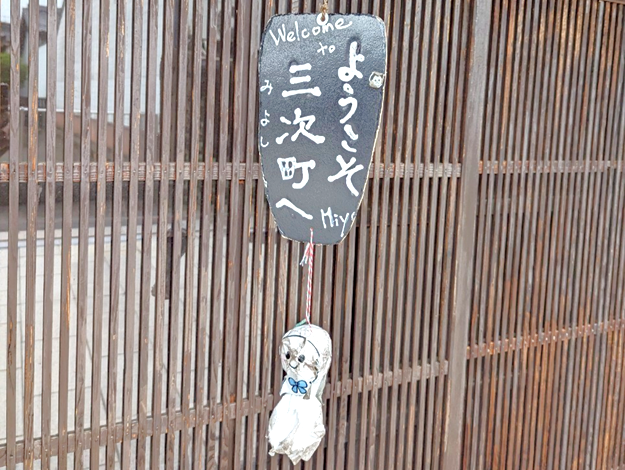 Welcome
to
ようこそ
三次町へ
みよし
Miyo